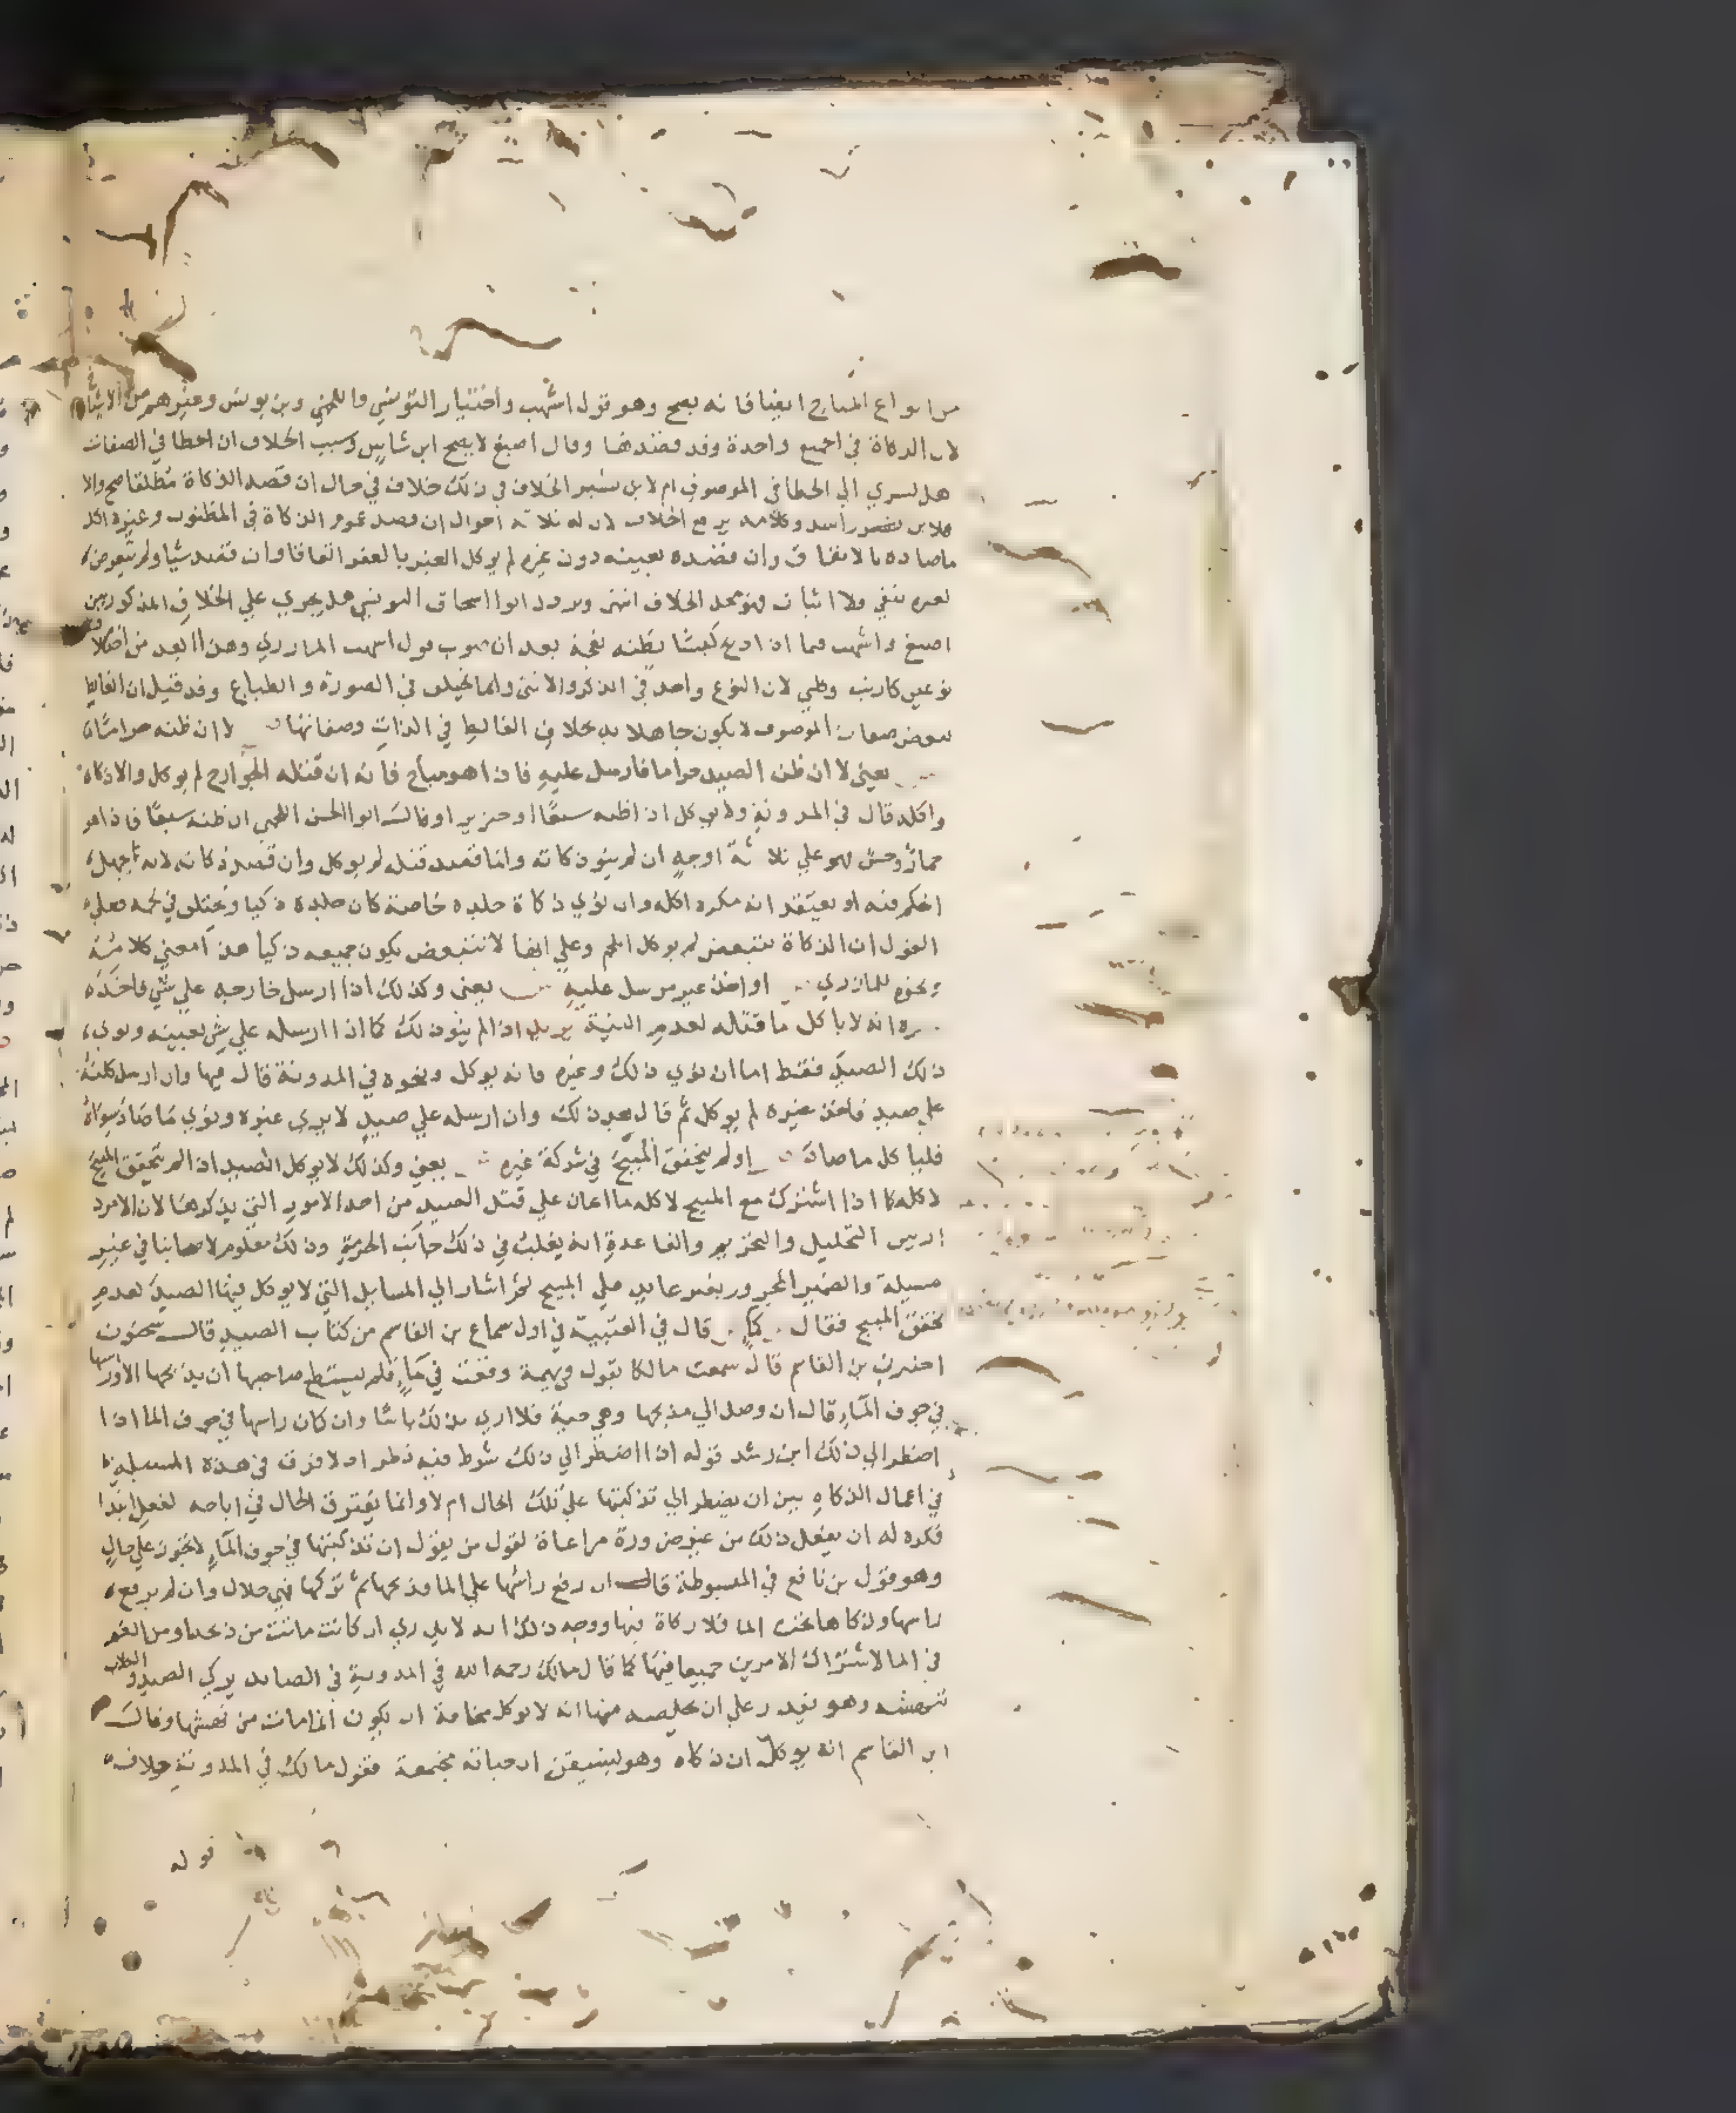 من انواع المباح ايضا فانه يصح وهو قول اشهب واختيار التونسي واللخمي وبن يونس وغيرهم من الاشيا
لان الذكاة في الجميع واحدة وقد قصدها وقال اصبغ لا يصح ابن شاس وسبب الخلاف ان الخطا في الصفات
هل يسري الي الخطا في الموصوف ام لا بن بشير الخلاف في ذلك خلاف في حال ان قصد الذكاة مطلقا صح والا
فلا بن راشد وكلامه مع الخلاف لان له ثلاثة احوال ان قصد عموم الذكاة في المظنون وغيره اكل
ما صاده بالاتفاق وان قصده بعينه دون غيره لم يوكل الغير بالعقر اتفاقا وان قصد شيا ولم يتعرض
لغيره بنفي ولا اثبات فهو محل الخلاف انتهى وتردد ابوا اسحاق التونسي هل يجري علي الخلاف المذكور بين
اصبغ واشهب فيما اذا ذبح كبشا يظنه نعجة بعد ان صوب قول اشهب المازري وهذا ابعد من
نوعين كارنب وظبي لان النوع واحد في الذكر والانثى وانما يختلف في الصورة والطباع وقد قيل ان الغالط
ببعض صفات الموصوف لا يكون جاهلا به بخلاف الغالط في الذات وصفاتها لا ان ظنه حراما
يعني لا ان ظن الصيد حراما فارسل عليه فاذا هو مباح فانه ان قتله الجوارح لم يوكل والا ذكاه
واكله قال في المدونة ولا يوكل اذا ظنه سبعا او خنزيرا وقال ابوا الحسن اللخمي ان ظنه سبعا فاذا هو
حمار وحش فهو علي ثلاثة اوجه ان لم ينو ذكاته وانما قصد قتله لم يوكل وان قصد ذكاته لانه يجهل
الحكم فيه او يعتقد انه مكروه اكله وان نوي ذكاة جلده خاصة كان جلده ذكيا ويختلف في لحمه فعلي
القول ان الذكاة تتبعض لم يوكل اللحم وعلي انها لا تتبعض يكون جميعه ذكيا هذا معنى كلامه
ونحوه للمازري او اخذ غير مرسل عليه يعني وكذلك اذا ارسل جارحه علي شي فاخذ
غيره انه لا ياكل ما قتله لعدم النية يريد اذا لم ينو ذلك كما اذا ارسله علي شي بعينه ونوي
ذلك الصيد فقط اما ان نوي ذلك وغيره فانه يوكل ونحوه في المدونة قال فيها وان ارسل كلبه
علي صيد فاخذ غيره لم يوكل ثم قال بعد ذلك وان ارسله علي صيد لا يري غيره ونوي ما صاد سواه
فلياكل ما صاد او لم يتحقق المبيح في شركة غيره يعني وكذلك لا يوكل الصيد اذا لم يتحقق المبيح
لاكله كما اذا اشترك مع المبيح لاكله ما اعان علي قتل الصيد من احد الامور التي يذكرها لان الامر
بين التحليل والتحريم والقاعدة انه يغلب في ذلك جانب الحرمة وذلك معلوم لاصحابنا في غير
مسيلة والضمير المجرور بغير عايد علي المبيح ثم اشار الي المسايل التي لا يوكل فيها الصيد لعدم
تحقق المبيح فقال كما قال في العتبية في اول سماع بن القاسم من كتاب الصيد قال سحنون
اخبرني بن القاسم قال سمعت مالكا يقول في بهيمة وقعت في ماء فلم يستطع صاحبها ان يذبحها الا وراسها
في جوف الماء قال ان وصل الي مذبحها وهي حية فلا اري بذلك باسا وان كان راسها في جوف الما اذا
اضطر الي ذلك ابن رشد قوله اذا اضطر الي ذلك شرط فيه نظر اذ لا فرق في هذه المسيلة
في اعمال الذكاه بين ان يضطر الي تذكيتها علي تلك الحال ام لا وانما يفترق الحال في اباحه لفعل ابتدا
فكره له ان يفعل ذلك من غير ضرورة مراعاة لقول من يقول ان تذكيتها في جوف الماء لا تجوز علي حال
وهو قول بن نافع في المبسوطة قال ان رفع راسها علي الما وذبحها ثم تركها فهي حلال وان لم يرفع
راسها وذكاها تحت الما فلا ذكاة فيها ووجه ذلك انه لا يدري ان كانت ماتت من ذبحه او من الغمر
في الما لاشتراك الامرين جميعا فيها كما قال مالك رحمه الله في المدونة في الصايد يدرك الصيد والكلاب
تنهشه وهو يقدر علي ان يخلصه منها انه لا يوكل مخافة ان يكون انما مات من نهشها وقال
ابن القاسم انه يوكل ان ذكاه وهو ليستيقن ان حياته مجتمعة فقول مالك في المدونة خلاف
قوله